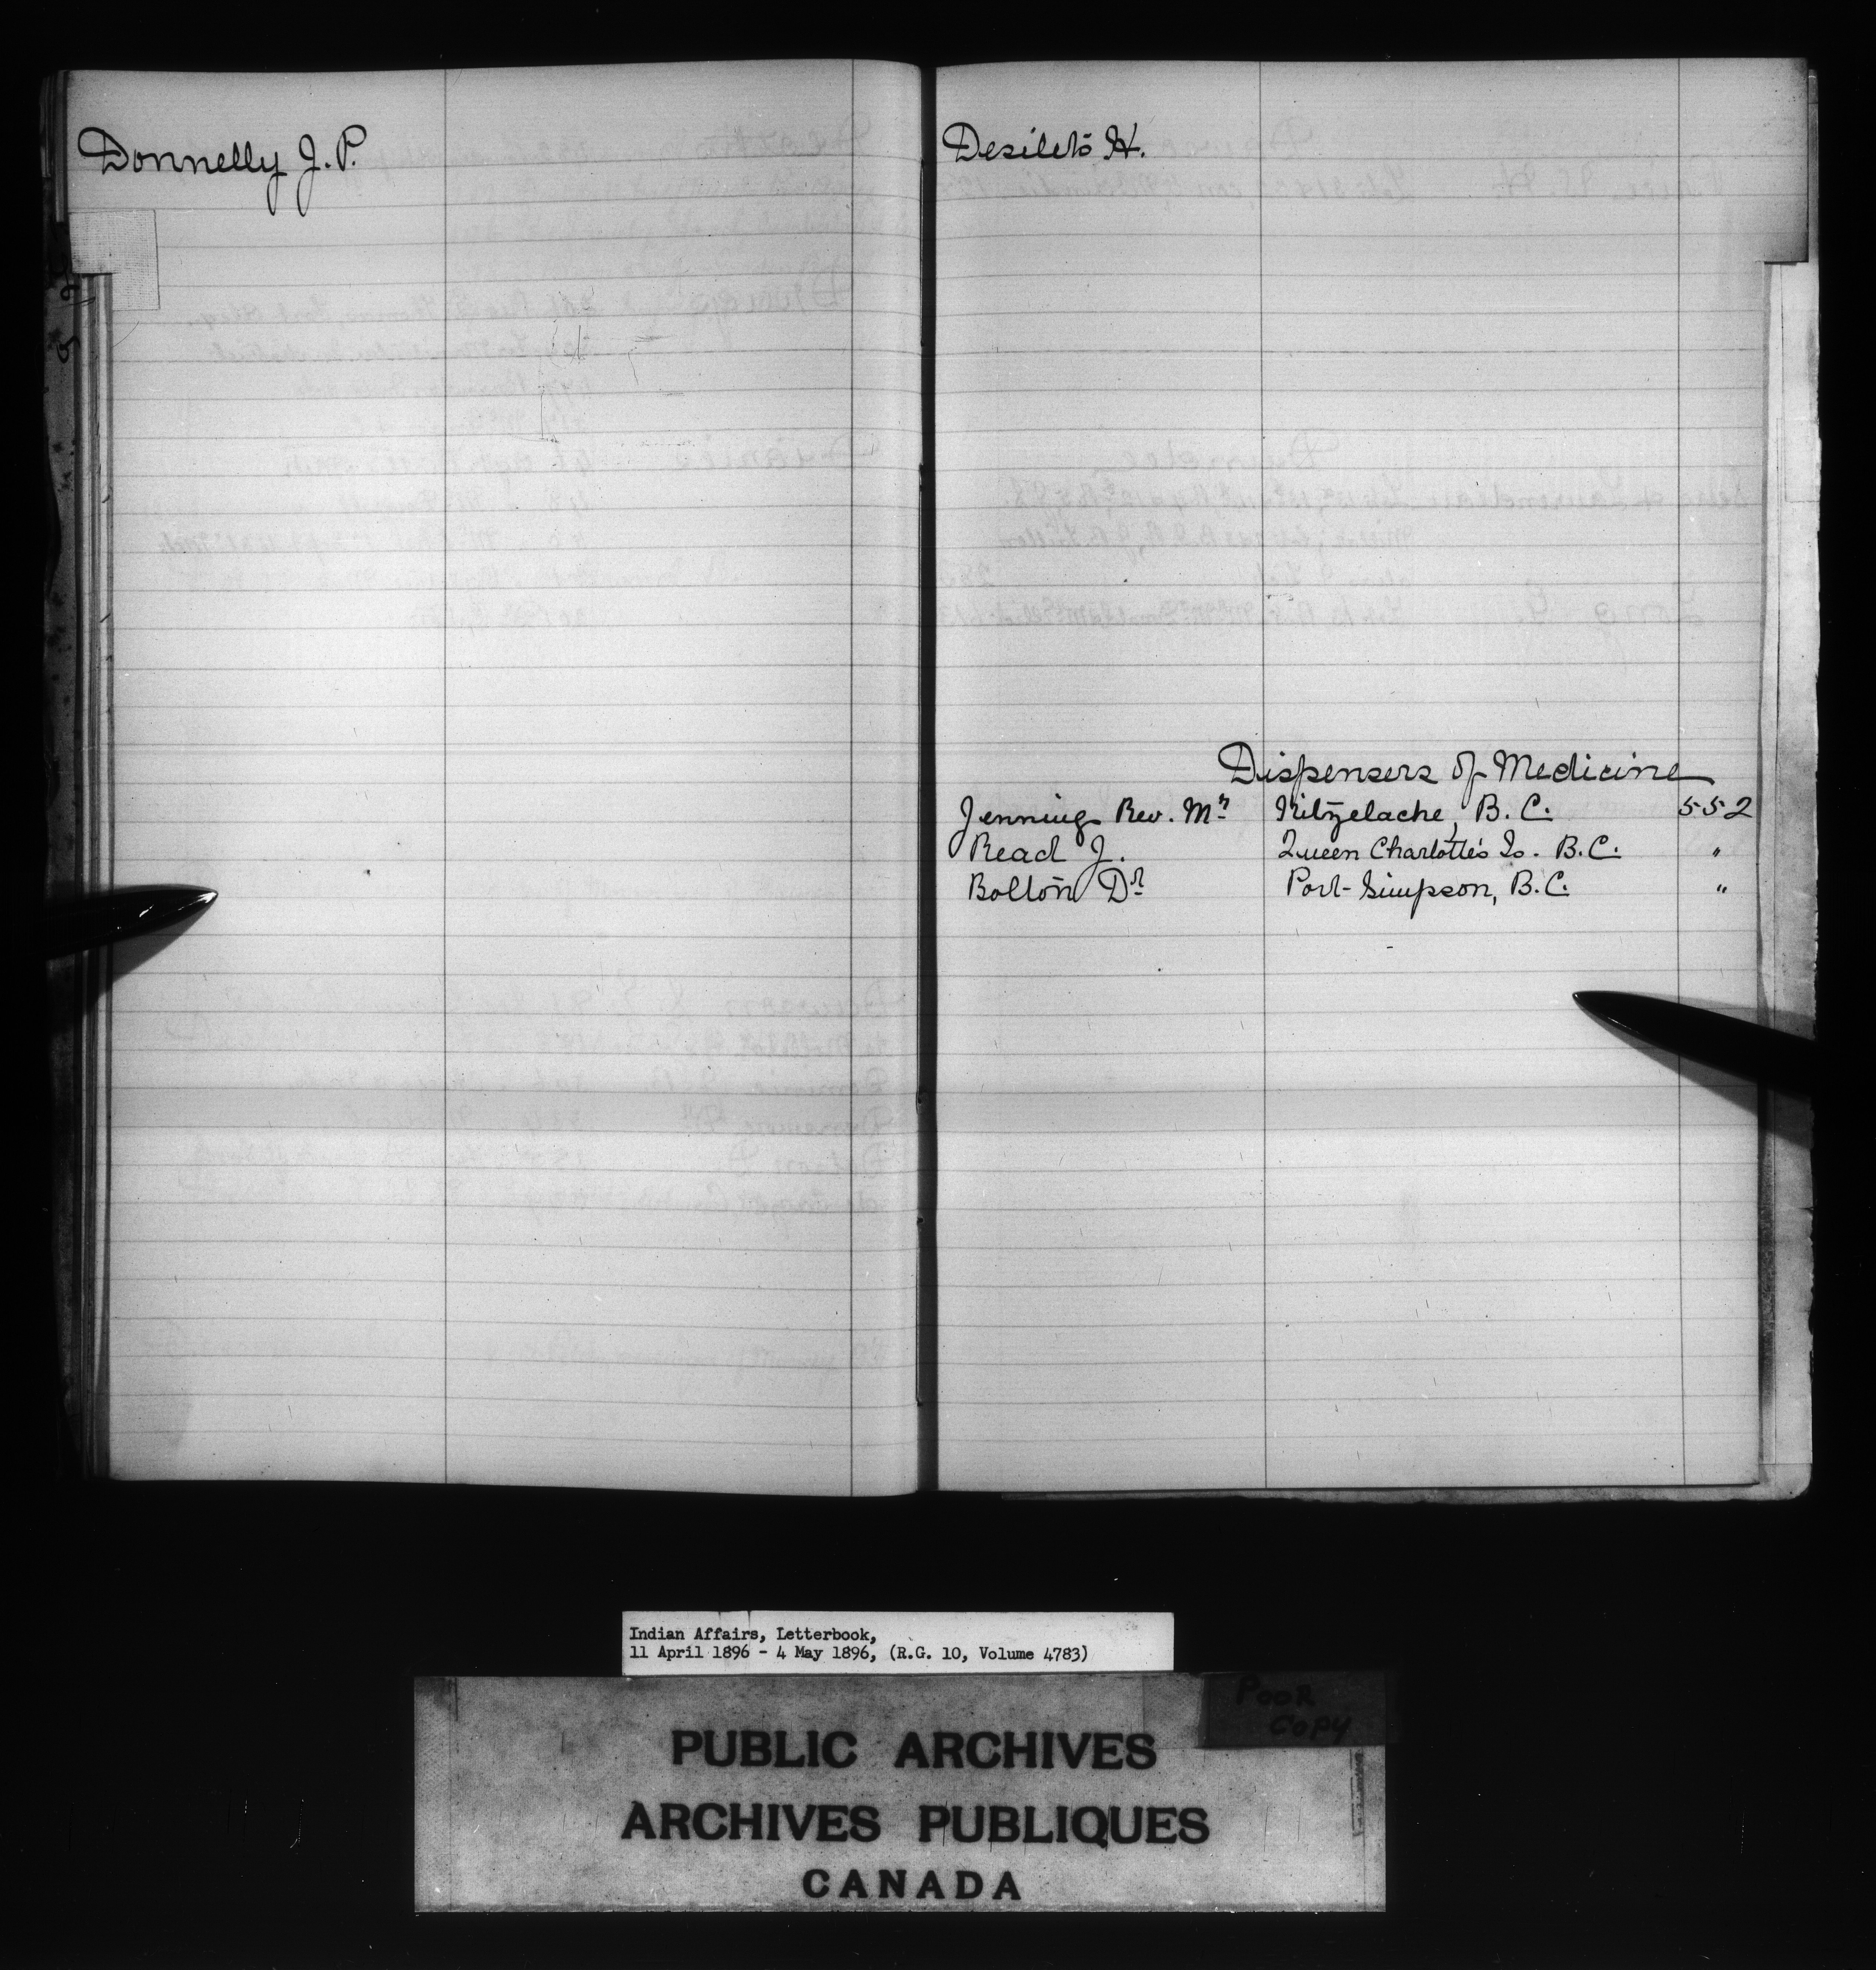 Donnelly J. P.
Desilets H.
Dispensers of Medicine
Jennings Rev. Mr Kitzelache, B. C. 552
Read J. Queen Charlotte's Is. B.C. "
Bolton Dr Port Simpson, B.C. "
Indian Affairs, Letterbook,
11 April 1896 - 4 May 1896, (R.G. 10, Volume 4783)
POOR
COPY
PUBLIC ARCHIVES
ARCHIVES PUBLIQUES
CANADA